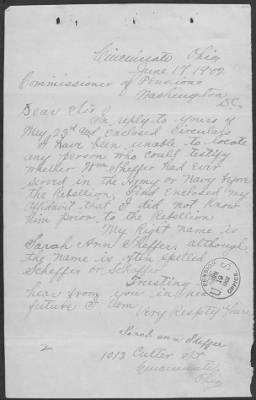 Cincinnati Ohio
June 17 1902
Commissioner of Pensions
Washington
D.C.
Dear Sir In reply to yours of
May 23rd and enclosed Circulars
I have been unable to locate
any person who could testify
whether Wm Sheffer had ever
served in the Army or Navy before
the Rebellion, Find enclosed my
affidavit that I did not know
him prior to the Rebellion
My right name is
Sarah Ann Sheffer, although
the name is often spelled
Scheffer or Schaffer
Trusting
hear from you in near
future I am,
Very Respty Yours
Sarah ann Sheffer
1013 Cutler st
Cincinnati
Ohio
2
PENSION OFFICE
U S
JUN 19 1902